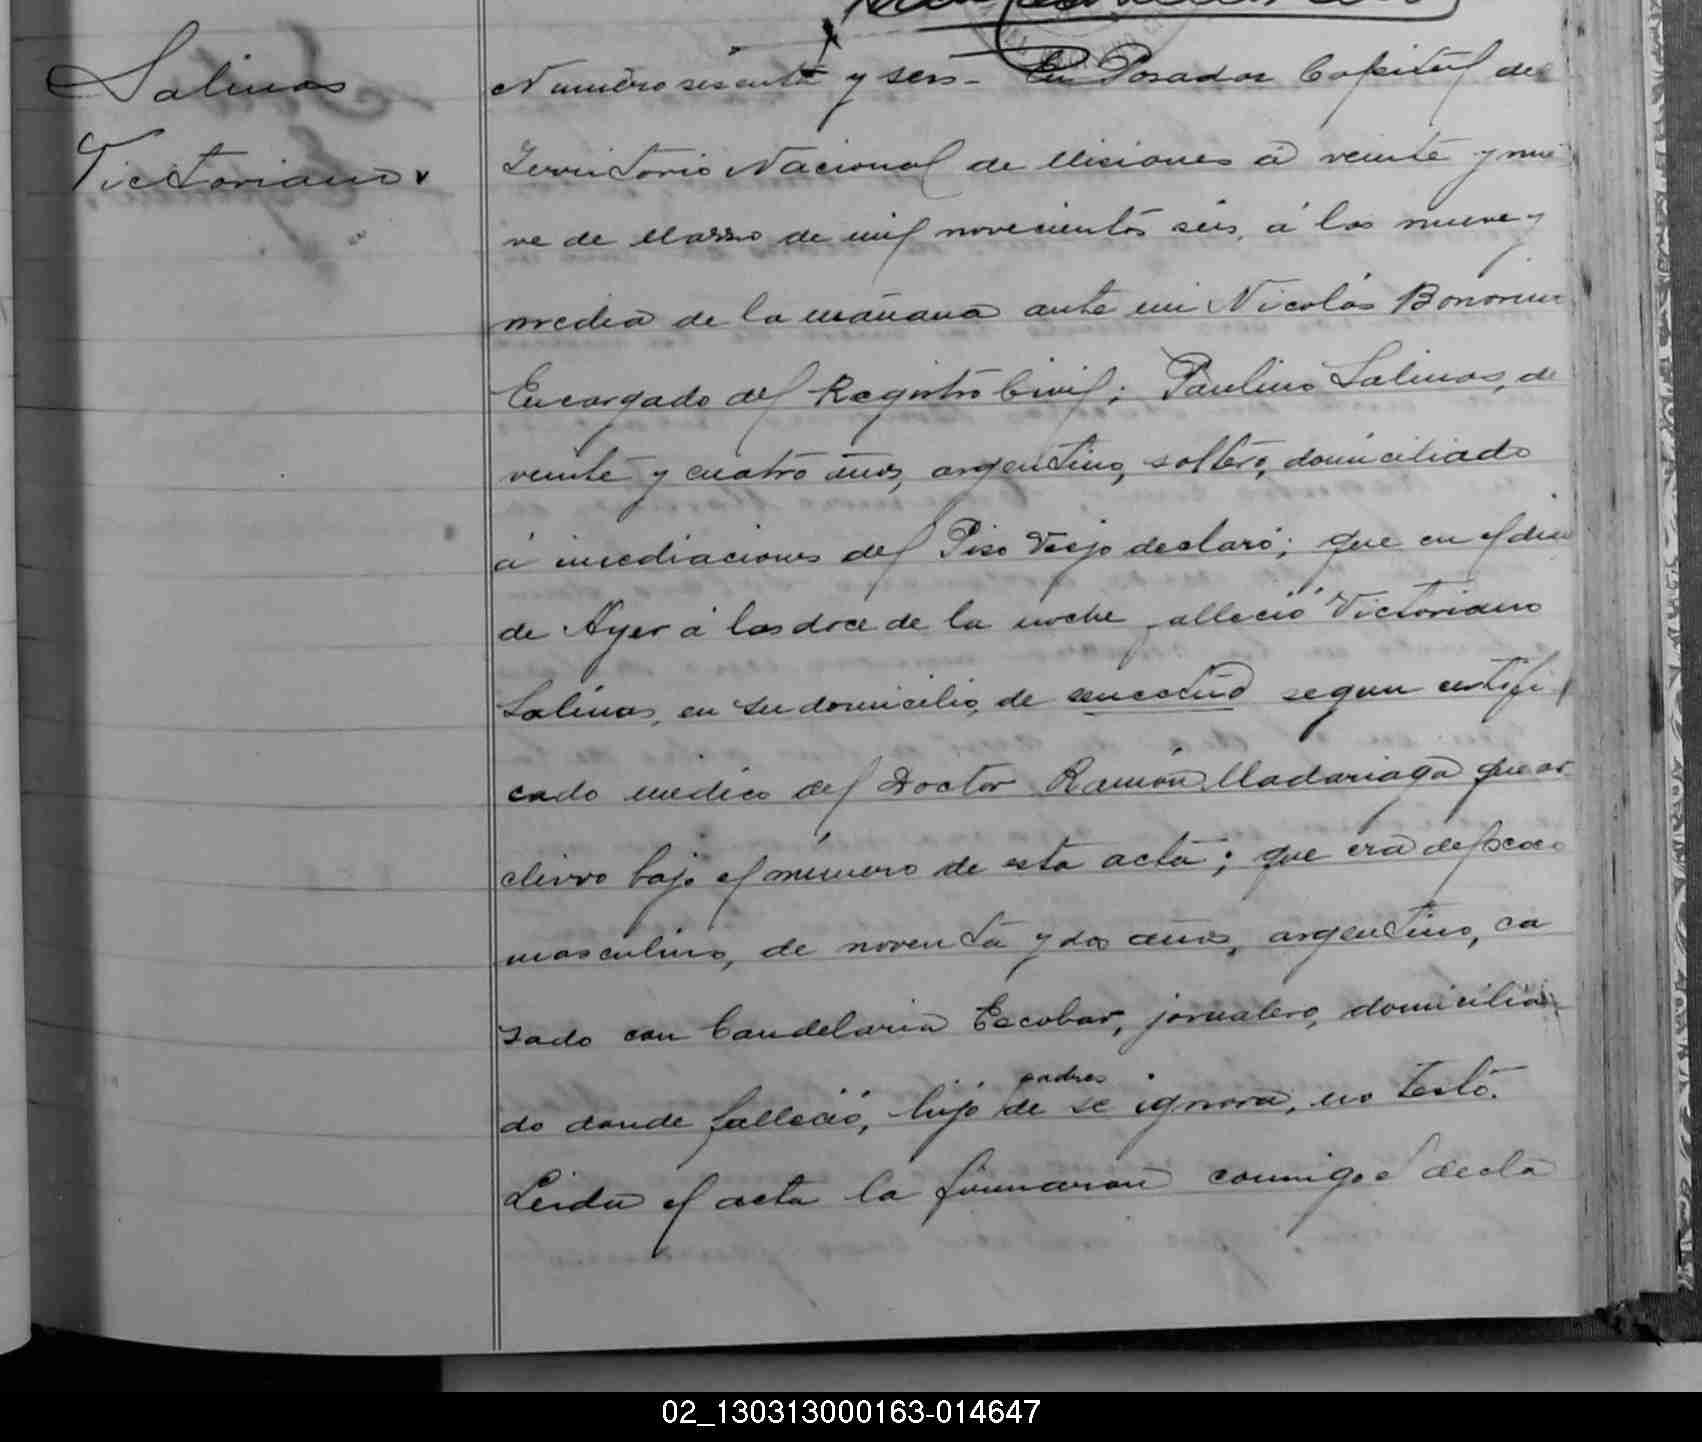 Salinas
Victoriano
Numero sesenta y seis - En Posadas Capital del
Territorio Nacional de Misiones á veinte y nue
ve de Marzo de mil novecientos seis, á las nueve y
media de la mañana ante mi Nicolás Bonorino
Encargado del Registro Civil; Paulino Salinas, de
veinte y cuatro años, argentino, soltero, domiciliado
á inmediaciones del Piso Viejo declaró; que en el dia
de Ayer á las doce de la noche falleció Victoriano
Salinas, en su domicilio, de segun certifi
cado médico del Doctor Ramón Madariaga que ar
chivo bajo el número de esta acta; que era del sexo
masculino, de noventa y dos años, argentino, ca
sado con Candelaria Escobar, jornalero, domicilia
do donde falleció, hijo de padres se ignora, no testó.
Leida el acta la firmaron conmigo el decla
02_130313000163-014647